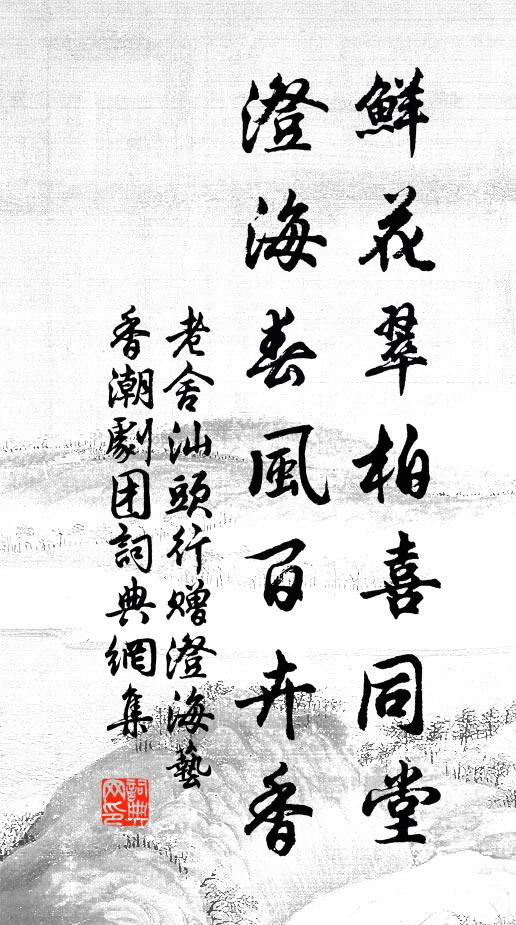 鮮花翠柏喜同堂
澄海春風百卉香
老舍汕頭行贈澄海藝
香潮劇团詞典網集
詞典网印